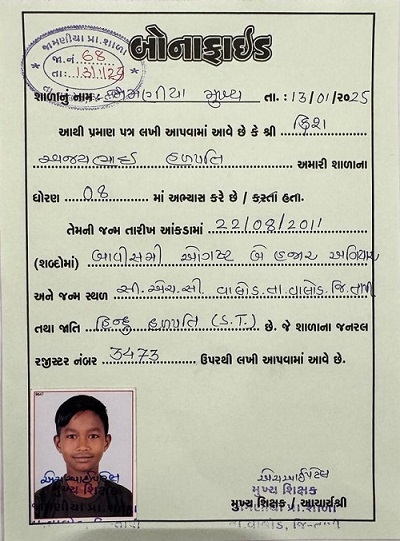 બોનાફાઇડ
જામણીયા પ્રા.શાળા
જા.નં. 68
તા: 13/1/25
શાળાનું નામ : જામણીયા મુખ્ય તા. : 13/01/2025
આથી પ્રમાણ પત્ર લખી આપવામાં આવે છે કે શ્રી ક્રિશ
અજયભાઈ હળપતિ અમારી શાળાના
ધોરણ 08 માં અભ્યાસ કરે છે / કરતાં હતા.
તેમની જન્મ તારીખ આંકડામાં 22/08/2011
(શબ્દોમાં) બાવીસમી ઓગષ્ટ બે હજાર અગિયાર
અને જન્મ સ્થળ સી.એચ.સી વાલોડ.તા.વાલોડ.જિ.તાપી
તથા જાતિ હિન્દુ હળપતિ (S.T.) છે. જે શાળાના જનરલ
રજીસ્ટર નંબર 3473 ઉપરથી લખી આપવામાં આવે છે.
એચઆઈપટેલ
મુખ્ય શિક્ષક
જામણીયા પ્રા.શાળા
તા.વાલોડ, જિ-તાપી
એચઆઈપટેલ
મુખ્ય શિક્ષક
મુખ્ય શિક્ષક / આચાર્યશ્રી
જામણીયા પ્રા.શાળા
તા.વાલોડ, જિ-તાપી